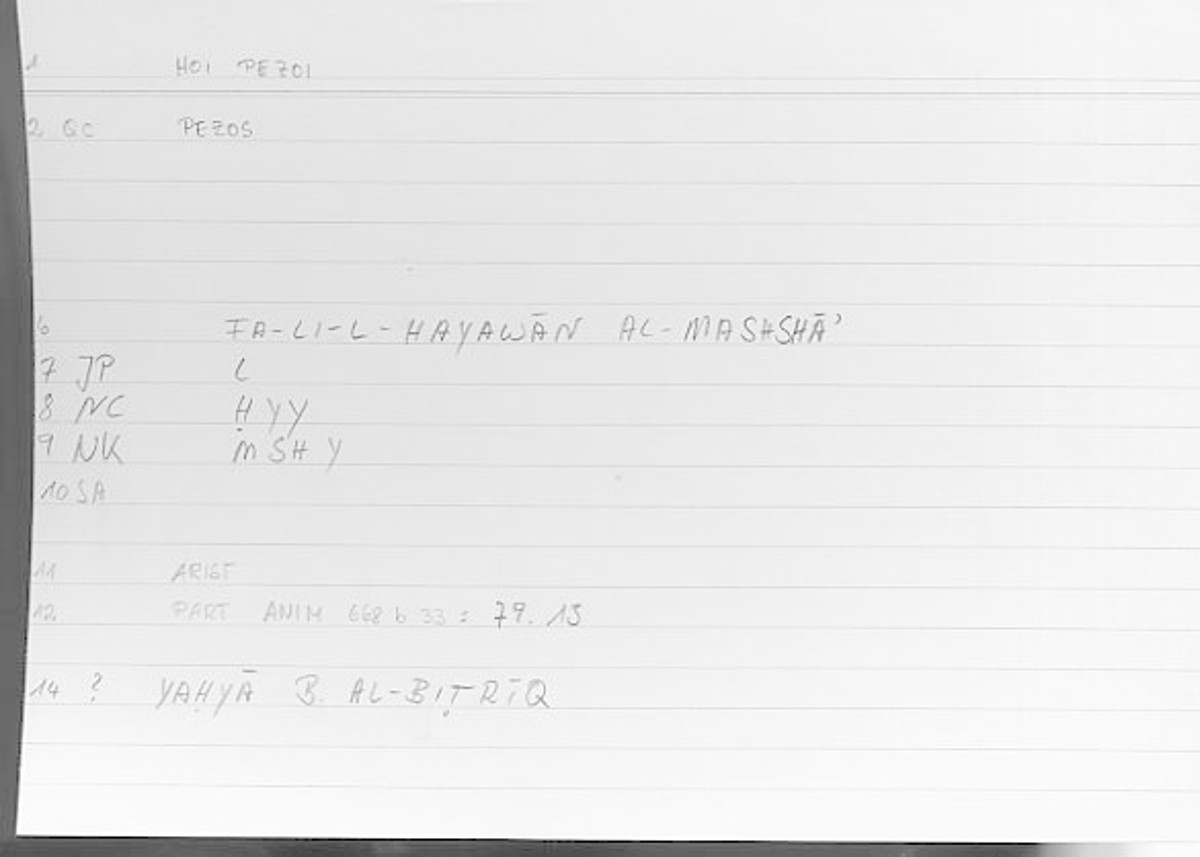 1 HOI PEZOI
2 QC PEZOS
6 FA-LI-L-HAYAWĀN AL-MASHSHĀʾ
7 JP L
8 NC ḤYY
9 NK MSHY
10 SA
11 ARIST
12. PART ANIM 668 b 33 : 79.15
14 ? YAḤYĀ B. AL-BIṬRĪQ